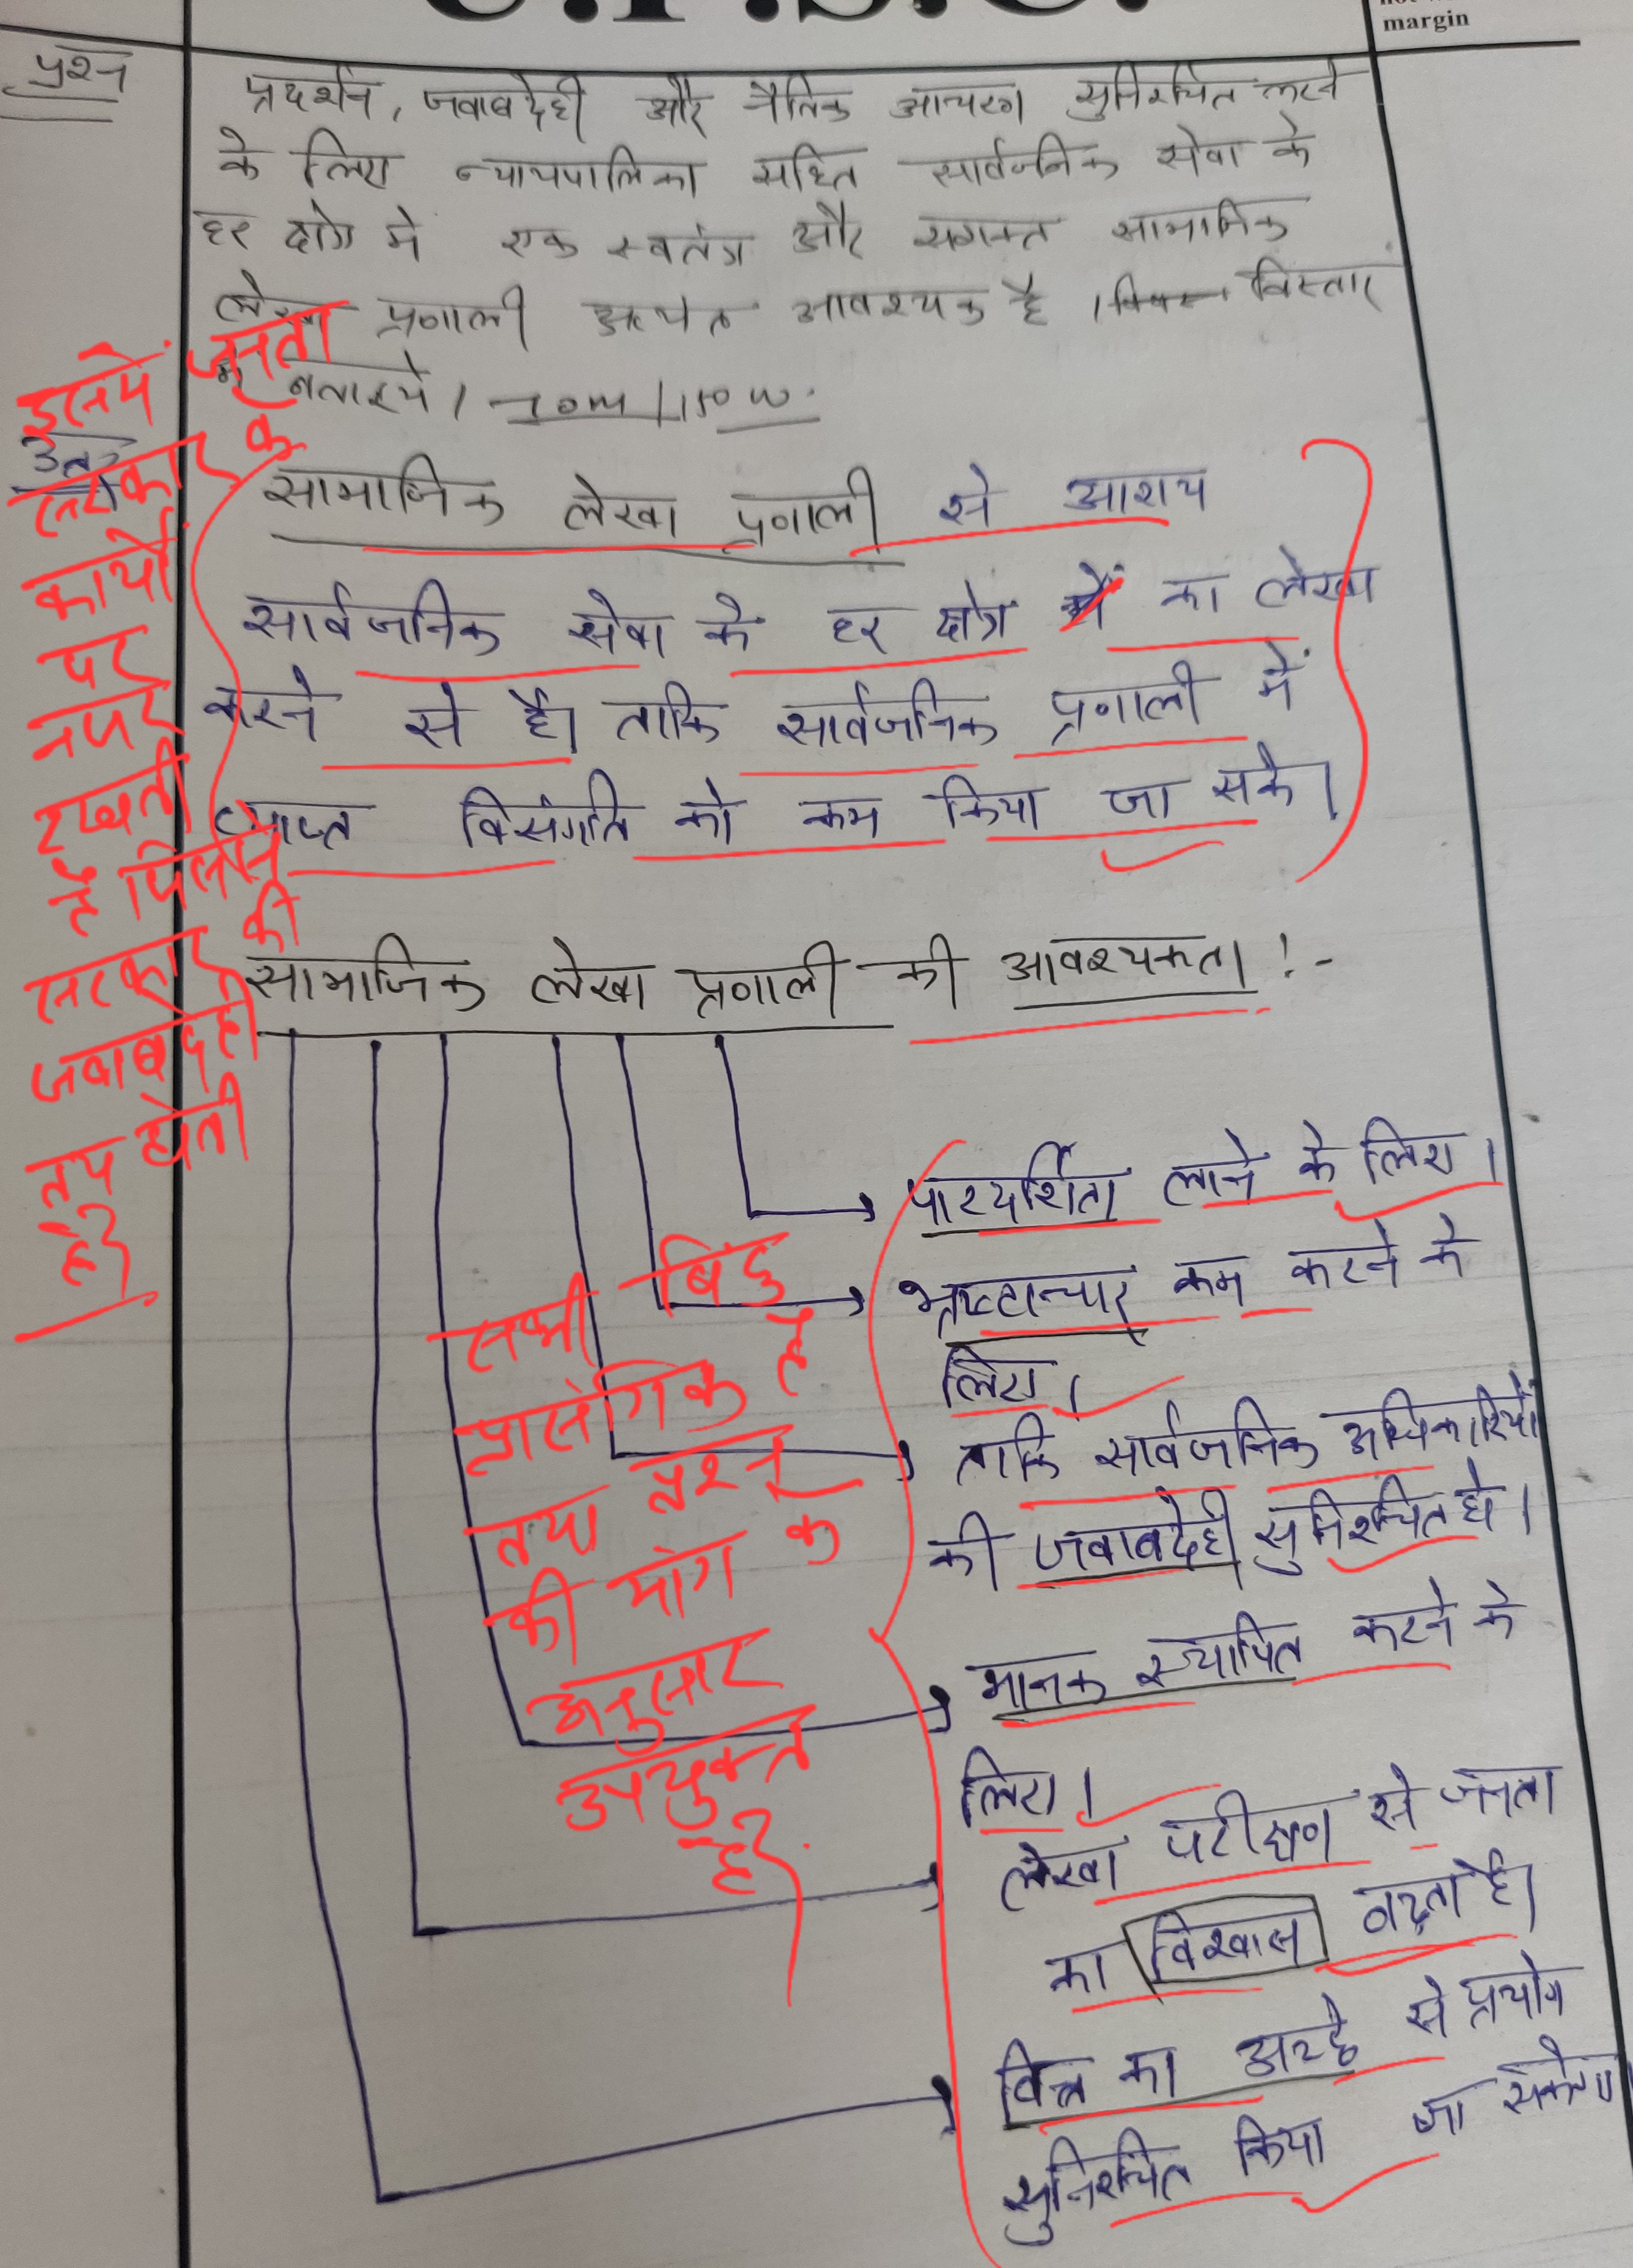 U.P.S.C.
margin
प्रश्न
प्रदर्शन, जवाबदेही और नैतिक आचरण सुनिश्चित करने
के लिए न्यायपालिका सहित सार्वजनिक सेवा के
हर क्षेत्र में एक स्वतंत्र और सशक्त सामाजिक
लेखा प्रणाली अत्यंत आवश्यक है । विस्तार
में बताइये । 10m/150 w.
उत्तर
सामाजिक लेखा प्रणाली से आशय
सार्वजनिक सेवा के हर क्षेत्र में का लेखा
करने से है। ताकि सार्वजनिक प्रणाली में
व्याप्त विसंगति को कम किया जा सके।
इसमें जनता
सरकार के
कार्यों
पर
नजर
रखती
है जिससे
सरकार की
जवाबदेही
तय होती
है।
सामाजिक लेखा प्रणाली की आवश्यकता :-
पारदर्शिता लाने के लिए ।
भ्रष्टाचार कम करने के
लिए ।
ताकि सार्वजनिक अधिकारियों
की जवाबदेही सुनिश्चित हो ।
मानक स्थापित करने के
लिए ।
लेखा परीक्षण से जनता
का विश्वास बढ़ता है।
वित्त का अच्छे से प्रयोग
सुनिश्चित किया जा सकेगा
सभी बिंदु
प्रासंगिक है
तथा प्रश्न
की मांग के
अनुसार
उपयुक्त
है।